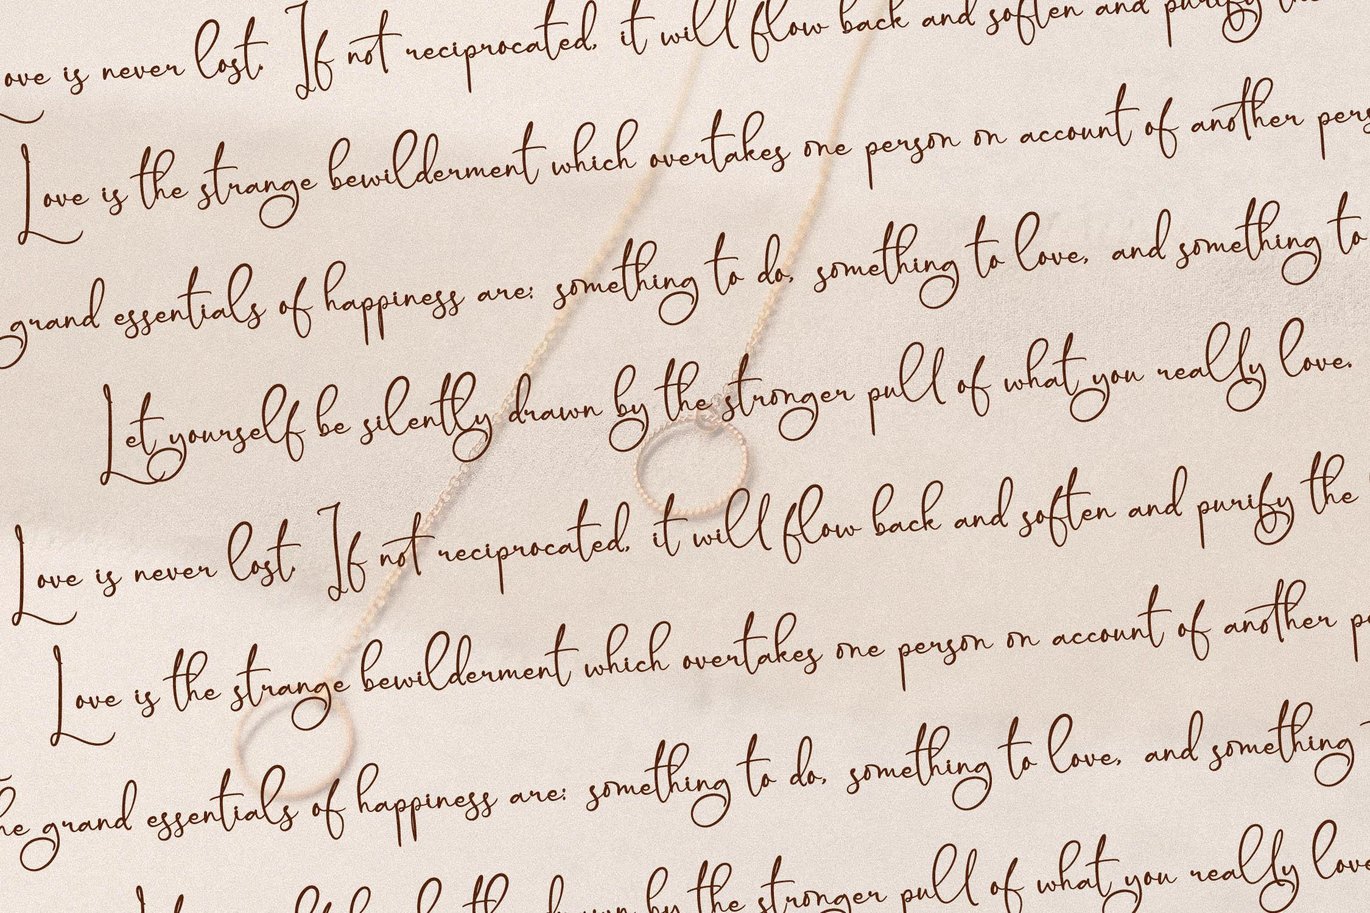 ove is never lost. If not reciprocated, it will flow back and soften and purify the
Love is the strange bewilderment which overtakes one person on account of another pers
grand essentials of happiness are: something to do, something to love, and something to
Let yourself be silently drawn by the stronger pull of what you really love.
Love is never lost. If not reciprocated, it will flow back and soften and purify the
Love is the strange bewilderment which overtakes one person on account of another p
he grand essentials of happiness are: something to do, something to love, and something
drawn by the stronger pull of what you really love